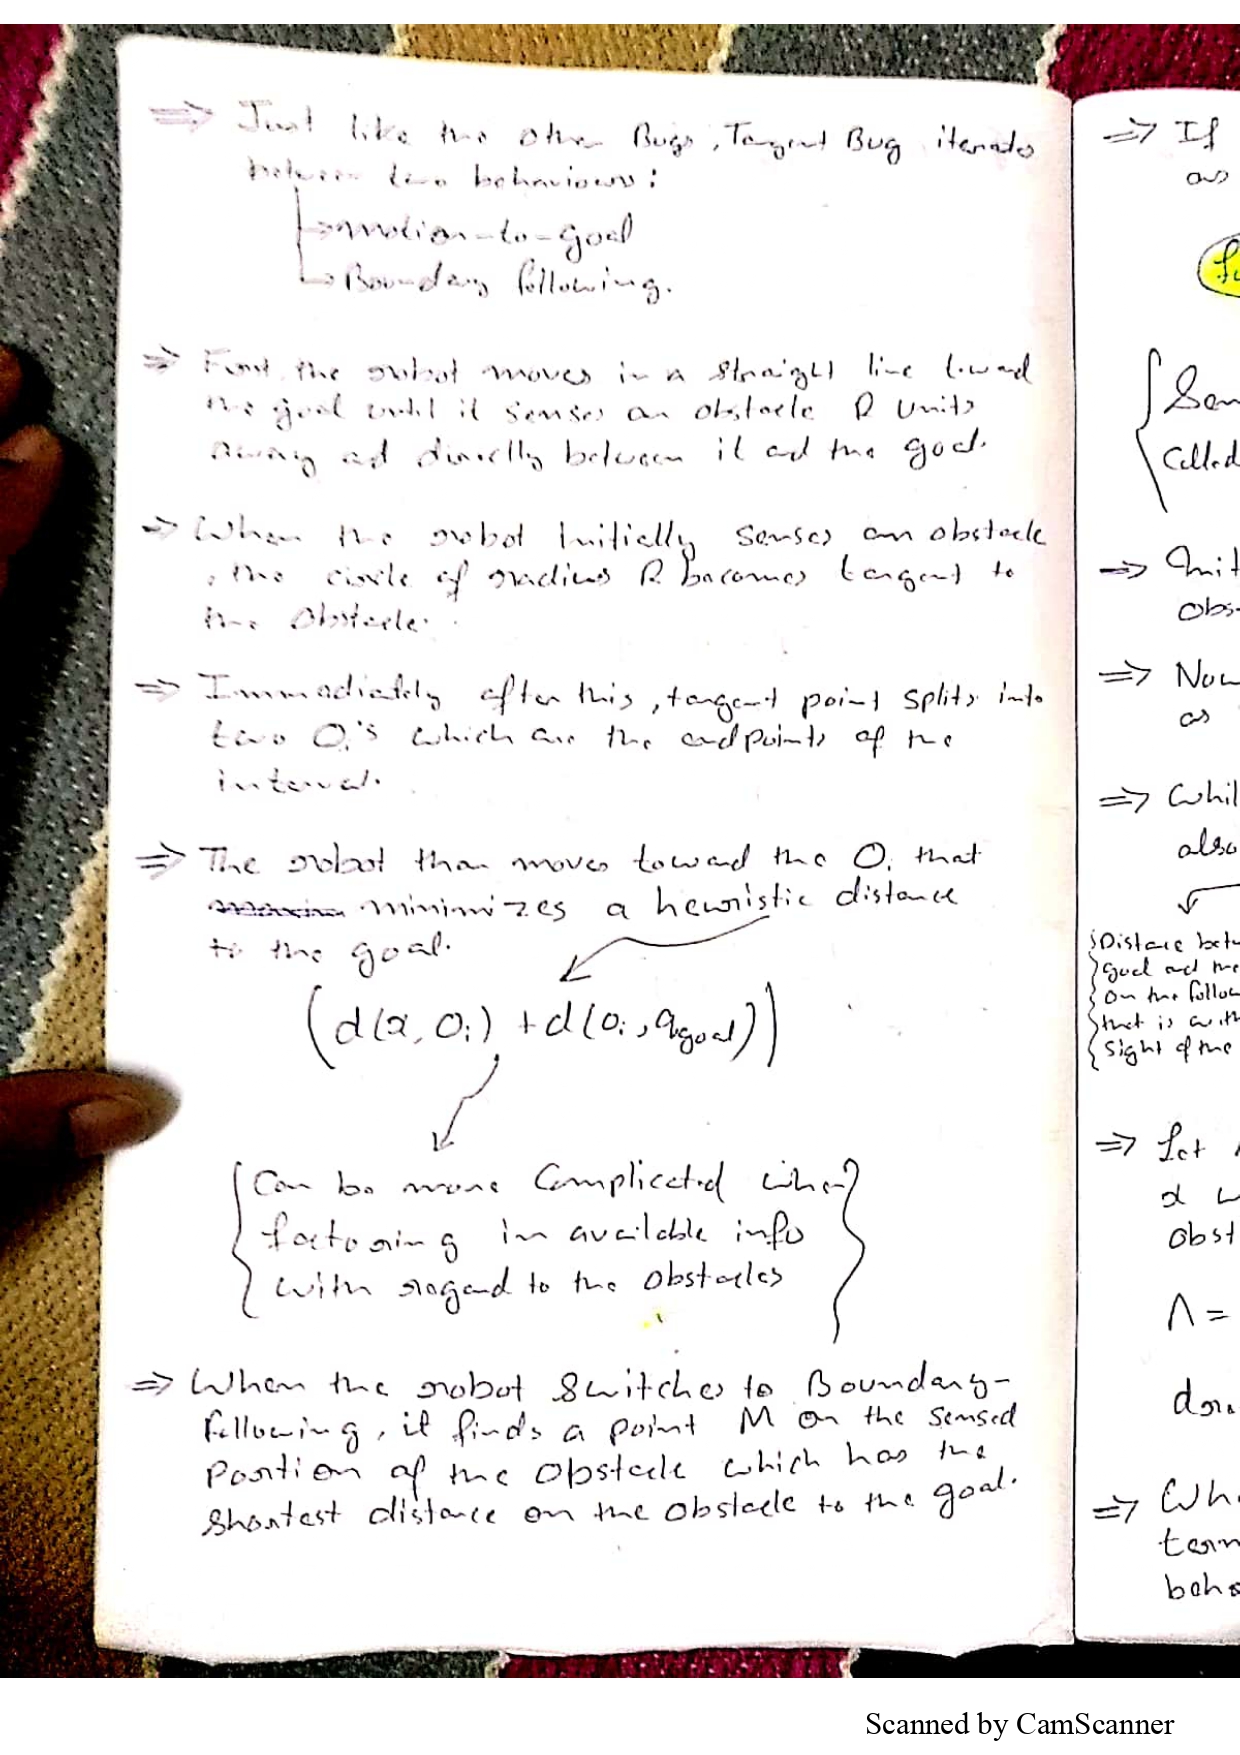 ⇒ Just like the other Bugs, Tangent Bug iterates
between two behaviours:
→ motion-to-goal
→ Boundary following.
⇒ First, the robot moves in a straight line toward
the goal until it senses an obstacle R units
away ad directly between it ad the goal.
⇒ When the robot Initially senses an obstacle
, the circle of radius R becomes tangent to
the Obstacle.
⇒ Immediately after this, tangent point splits into
two Oi's which are the endpoints of the
interval.
⇒ The robot than moves toward the Oi that
minimizes a heuristic distance
to the goal.
(d(x, Oi) + d(Oi, qgoal))
Can be more Complicated when
factoring in available info
with regard to the Obstacles
⇒ When the robot Switches to Boundary-
following, it finds a point M on the sensed
Portion of the Obstacle which has the
Shortest distance on the obstacle to the goal.
⇒ If
as
Called
⇒
⇒
as
⇒
also
Distace
goal ad the
on the
that is
Sight of the
⇒ Let
x
Λ =
⇒
Scanned by CamScanner